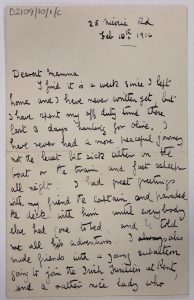 D2109/10/1/C
25 Rd
Feb 10th, 1916
Dearest Mamma
I find it is a week since I left
home and I have never written yet, but
I have spent my off duty time these
last 3 days hunting for Olive. I
have never had a more peaceful journey
not the least bit sick either on the
boat or the train, and fast asleep
all night. I had great greetings
with my friend the Captain and paraded
the deck with him until everybody
else had gone to bed, and he told
me all his adventures. I also
made friends with a young
going to join the Irish Fusiliers at Kent
and a rather nice lady who